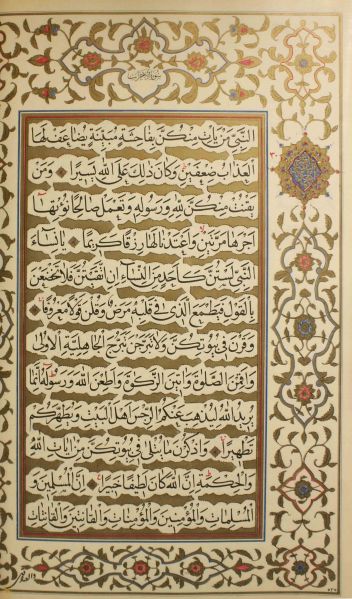 سورة الاحزاب
النَّبِيِّ مَنْ يَأْتِ مِنْكُنَّ بِفَاحِشَةٍ مُبَيِّنَةٍ يُضَاعَفْ لَهَا
الْعَذَابُ ضِعْفَيْنِ وَكَانَ ذَلِكَ عَلَى اللهِ يَسِيرًا وَمَنْ
يَقْنُتْ مِنْكُنَّ لِلّٰهِ وَرَسُولِهِ وَتَعْمَلْ صَالِحًا نُؤْتِهَا
اَجْرَهَا مَرَّتَيْنِ وَاَعْتَدْنَا لَهَا رِزْقًا كَرِيمًا يَا نِسَاءَ
النَّبِيِّ لَسْتُنَّ كَاَحَدٍ مِنَ النِّسَاءِ اِنِ اتَّقَيْتُنَّ فَلَا تَخْضَعْنَ
بِالْقَوْلِ فَيَطْمَعَ الَّذِي فِي قَلْبِهِ مَرَضٌ وَقُلْنَ قَوْلًا مَعْرُوفًا
وَقَرْنَ فِي بُيُوتِكُنَّ وَلَا تَبَرَّجْنَ تَبَرُّجَ الْجَاهِلِيَّةِ الْاُولَى
وَاَقِمْنَ الصَّلٰوةَ وَآتِينَ الزَّكٰوةَ وَاَطِعْنَ اللهَ وَرَسُولَهُ اِنَّمَا
يُرِيدُ اللهُ لِيُذْهِبَ عَنْكُمُ الرِّجْسَ اَهْلَ الْبَيْتِ وَيُطَهِّرَكُمْ
تَطْهِيرًا وَاذْكُرْنَ مَا يُتْلَى فِي بُيُوتِكُنَّ مِنْ آيَاتِ اللهِ
وَالْحِكْمَةِ اِنَّ اللهَ كَانَ لَطِيفًا خَبِيرًا اِنَّ الْمُسْلِمِينَ وَ
الْمُسْلِمَاتِ وَالْمُؤْمِنِينَ وَالْمُؤْمِنَاتِ وَالْقَانِتِينَ وَالْقَانِتَاتِ